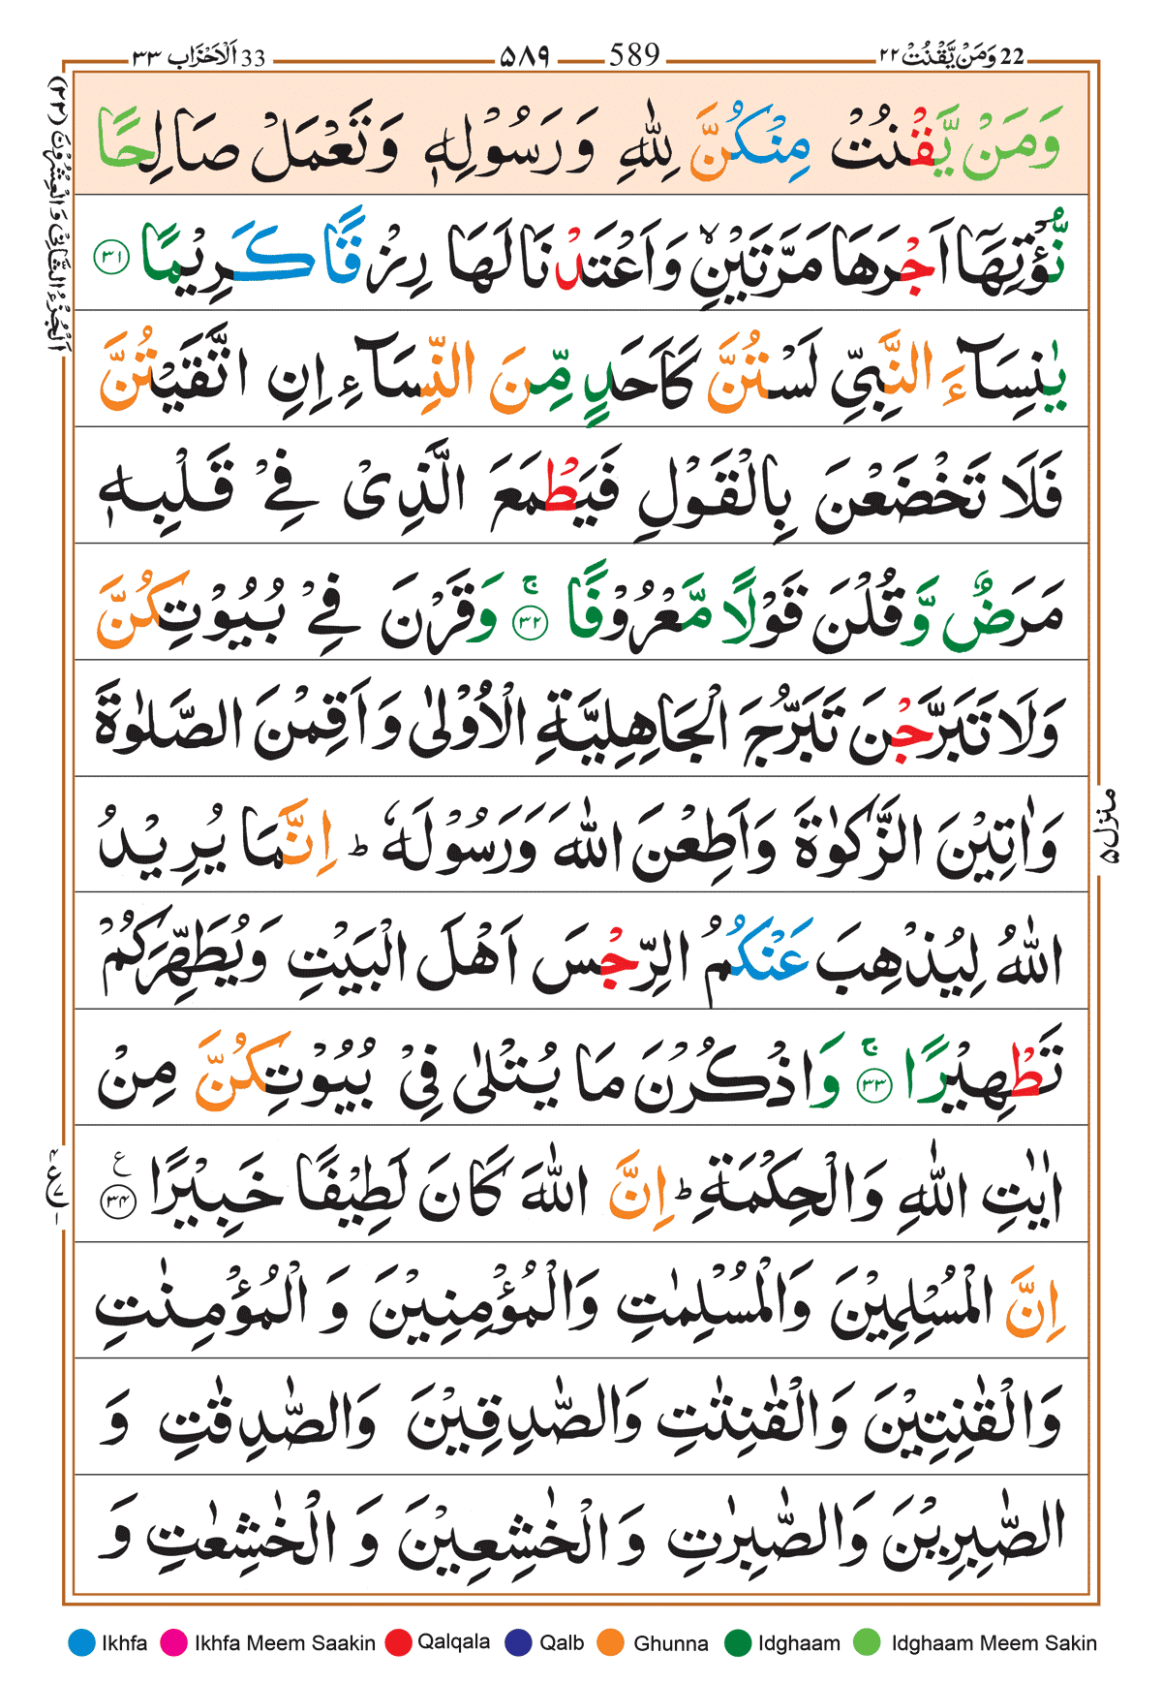 22 وَمَنْ يَّقْنُتْ ٢٢
589 ٥٨٩
33 اَلْاَحْزَاب ٣٣
وَمَنْ يَّقْنُتْ مِنْكُنَّ لِلّٰهِ وَرَسُوْلِهٖ وَتَعْمَلْ صَالِحًا
نُّؤْتِهَاۤ اَجْرَهَا مَرَّتَيْنِۙ وَاَعْتَدْنَا لَهَا رِزْقًا كَرِيْمًا ﴿٣١﴾
يٰنِسَآءَ النَّبِيِّ لَسْتُنَّ كَاَحَدٍ مِّنَ النِّسَآءِ اِنِ اتَّقَيْتُنَّ
فَلَا تَخْضَعْنَ بِالْقَوْلِ فَيَطْمَعَ الَّذِيْ فِيْ قَلْبِهٖ
مَرَضٌ وَّقُلْنَ قَوْلًا مَّعْرُوْفًا ۚ ﴿٣٢﴾ وَقَرْنَ فِيْ بُيُوْتِكُنَّ
وَلَا تَبَرَّجْنَ تَبَرُّجَ الْجَاهِلِيَّةِ الْاُوْلٰى وَاَقِمْنَ الصَّلٰوةَ
وَاٰتِيْنَ الزَّكٰوةَ وَاَطِعْنَ اللّٰهَ وَرَسُوْلَهٗ ؕ اِنَّمَا يُرِيْدُ
اللّٰهُ لِيُذْهِبَ عَنْكُمُ الرِّجْسَ اَهْلَ الْبَيْتِ وَيُطَهِّرَكُمْ
تَطْهِيْرًا ۚ ﴿٣٣﴾ وَاذْكُرْنَ مَا يُتْلٰى فِيْ بُيُوْتِكُنَّ مِنْ
اٰيٰتِ اللّٰهِ وَالْحِكْمَةِ ؕ اِنَّ اللّٰهَ كَانَ لَطِيْفًا خَبِيْرًا ﴿٣٤﴾ ع
اِنَّ الْمُسْلِمِيْنَ وَالْمُسْلِمٰتِ وَالْمُؤْمِنِيْنَ وَ الْمُؤْمِنٰتِ
وَالْقٰنِتِيْنَ وَالْقٰنِتٰتِ وَالصّٰدِقِيْنَ وَالصّٰدِقٰتِ وَ
الصّٰبِرِيْنَ وَالصّٰبِرٰتِ وَ الْخٰشِعِيْنَ وَ الْخٰشِعٰتِ وَ
اَلْجُزْءُ الثَّانِيْ وَ الْعِشْرُوْنَ (٢٢)
منزل ٥
Ikhfa Ikhfa Meem Saakin Qalqala Qalb Ghunna Idghaam Idghaam Meem Sakin